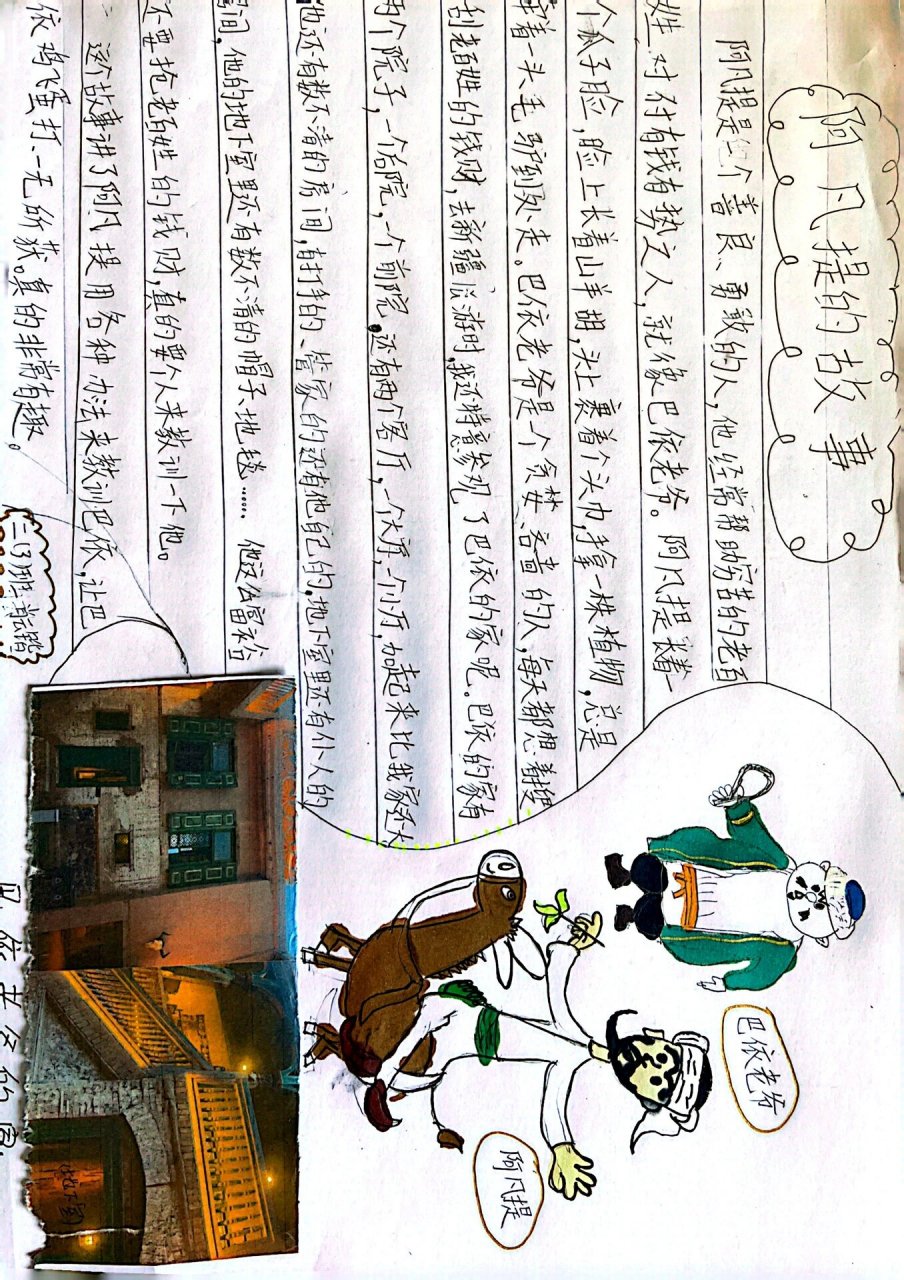 阿凡提的故事
阿凡提是个善良、勇敢的人,他经常帮助穷苦的老百
姓 对付有钱有势之人,就像巴依老爷。阿凡提长着一
个瓜子脸,脸上长着山羊胡,头上裹着个头巾,拿一株植物,总是
牵着一头毛驴到处走。巴依老爷是个贪婪、吝啬的人,每天都想着搜
刮老百姓的钱财,去新疆旅游时,我还特意参观了巴依的家呢。巴依的家有
两个院子,一个后院,一个前院,还有两个客厅,一个大厅,一个小厅,加起来比我家还大
他还有数不清的房间,有打手的、管家的还有他自己的,地下室还有仆人的
房间,他的地下室里还有数不清的帽子、地毯……他这么富裕
还要抢老百姓的钱财,真的要个人来教训一下他。
这个故事讲了阿凡提用各种办法来教训巴依,让巴
依鸡飞蛋打、一无所获。真的非常有趣。
三(3)班
巴依老爷
阿凡提
地下室
巴依老爷的家